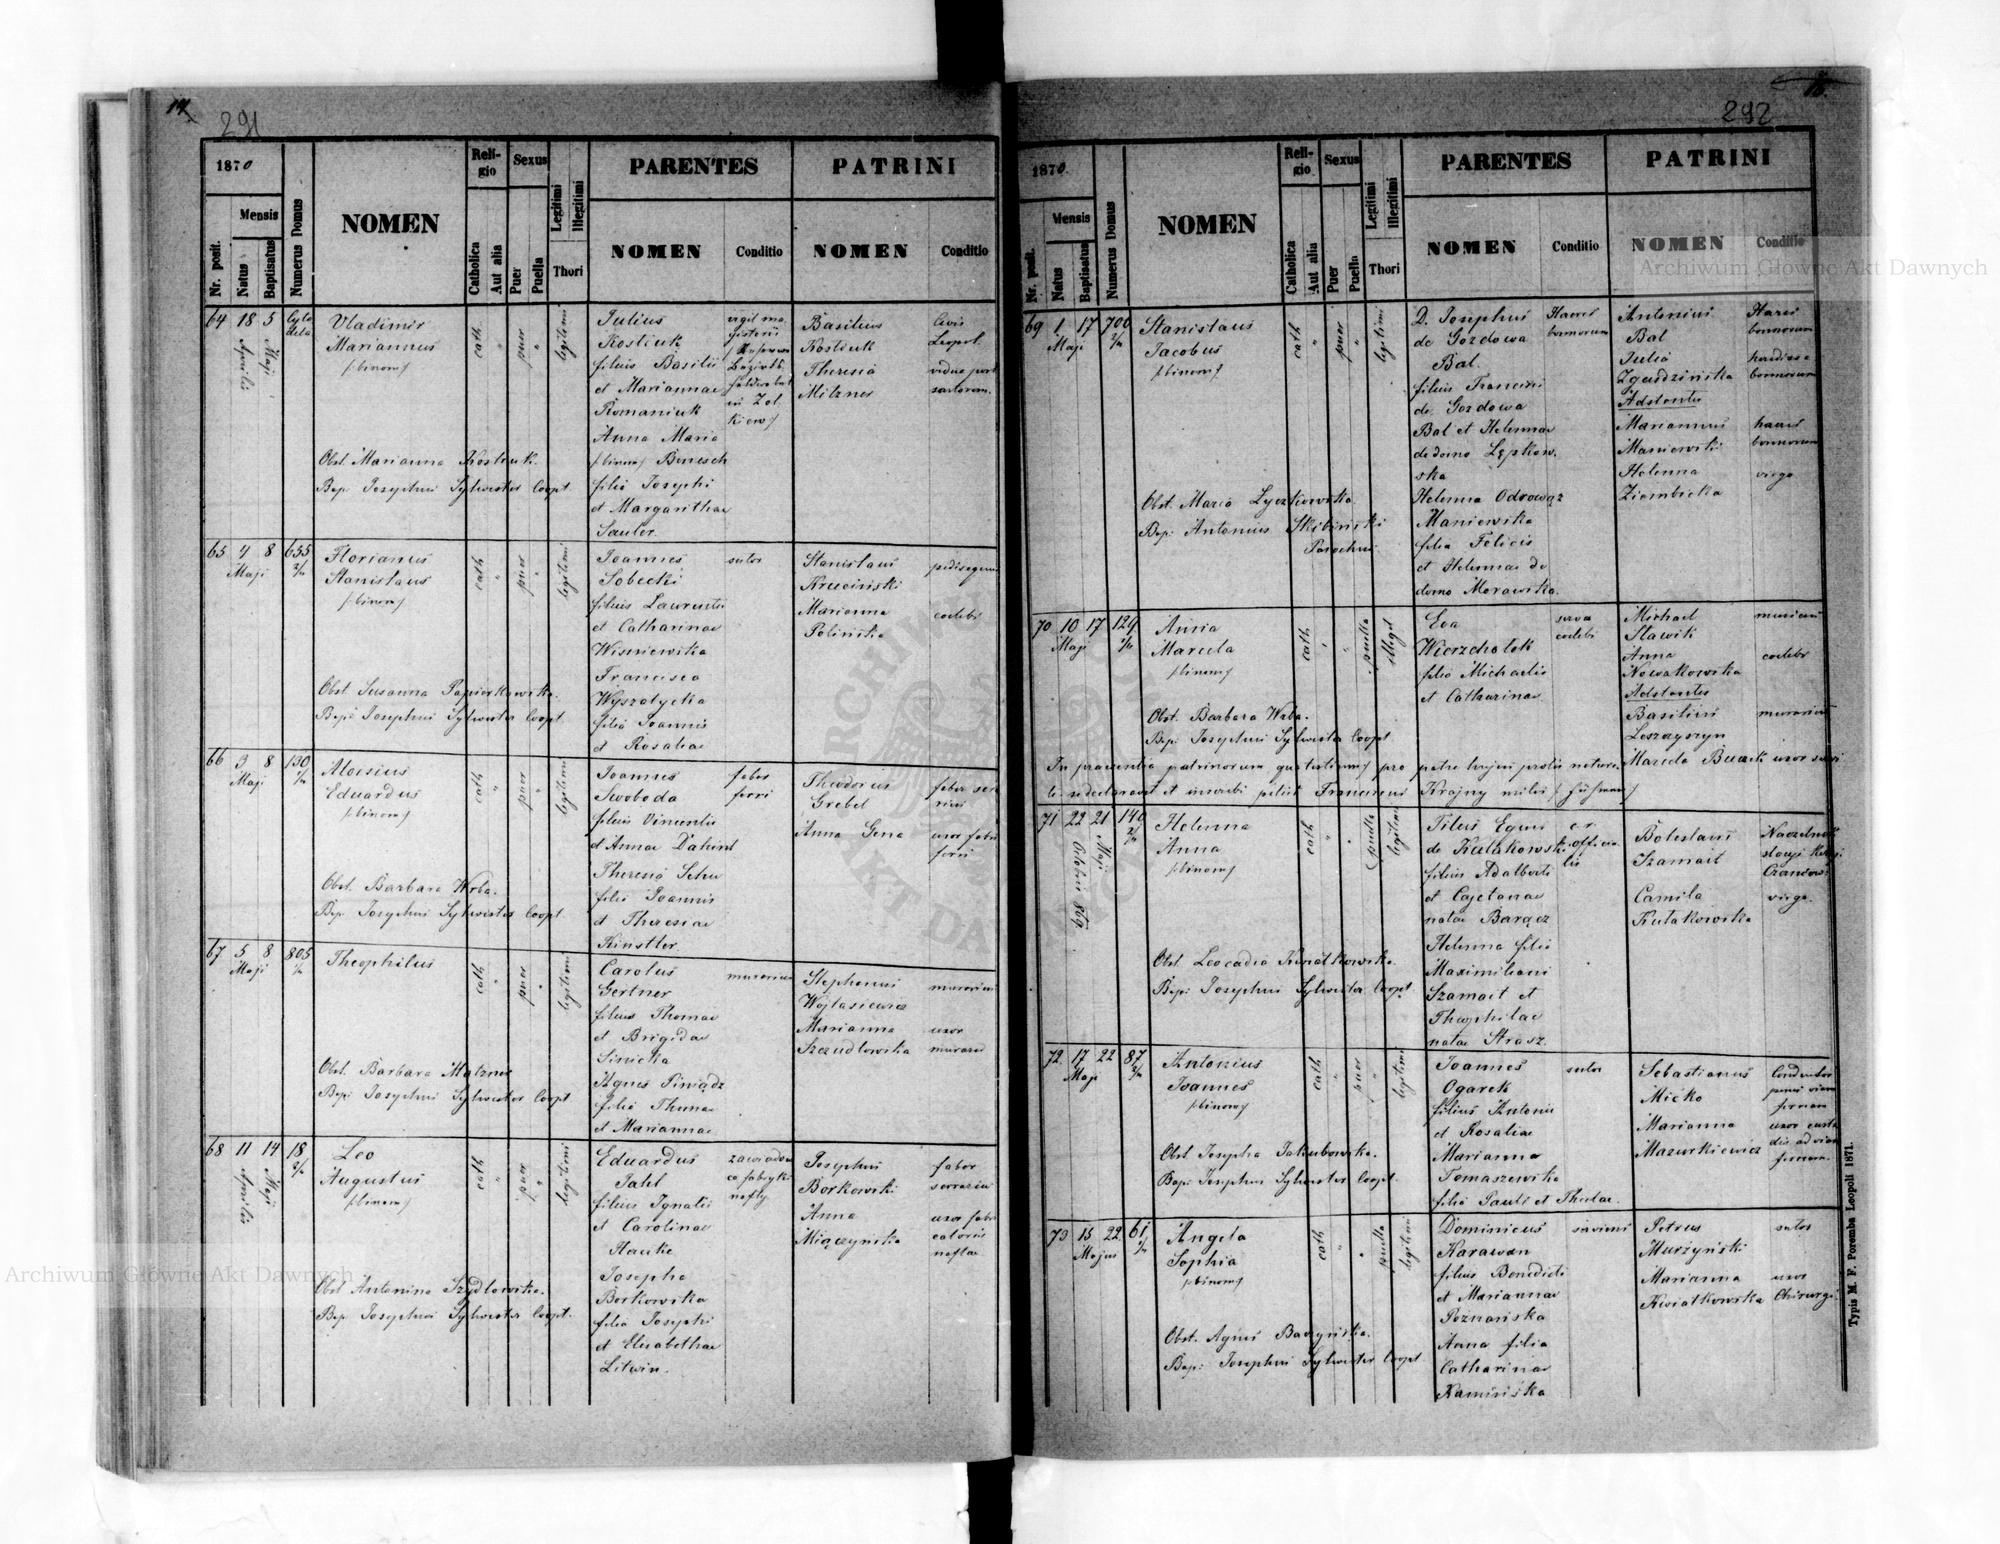 14
291
1870
Nr. posit.
Mensis
Natus
Baptisatus
Numerus Domus
NOMEN
Religio
Catholica
Aut alia
Sexus
Puer
Puella
Legitimi
Illegitimi
Thori
PARENTES
NOMEN
Conditio
PATRINI
NOMEN
Conditio
64 18 5
Aprilis Maji
Vladimir
Mariannus
/:binom:/
cath " puer " legitimi
Obst. Marianna Kostiuk.
Bap. Josephus Sylwester Coopt.
Julius
Kostiuk
filius Basilii
et Mariannae
Romaniuk
Anna Maria
/:binom:/ Binesch
filia Josephi
et Margarithae
Sauler.
Basilius
Kostiuk
Theresia
Milzner
civis
Leopol.
vidua post
sartorem.
65 4 8 655 2/4
Maji
Florianus
Stanislaus
/:binom:/
cath " puer " legitimi
Obst. Susanna Papierkowska.
Bap: Josephus Sylwester Coopt.
Joannes
Sobecki
filius Laurentii
et Catharinae
Wisniewska
Francisca
Wyszotycka
filia Joannis
et Rosaliae
sutor
Stanislaus
Kruciński
Marianna
Polińska
pedisequus
coelebs
66 3 8 130
Maji
Aloisius
Eduardus
/:binom:/
cath " puer " legitimi
Obst. Barbara Wrba.
Bap. Josephus Sylwester Coopt.
Joannes
Swoboda
filius Vincentii
et Annae Dahint
Theresia Schu
filia Joannis
et Theresiae
Kinstler.
faber
ferri
Theodorus
Grebel
Anna Gena
uxor fabri
ferri
67 5 8 805
Maji
Theophilus
cath " puer " legitimi
Obst. Barbara Matzner
Bap: Josephus Sylwester Coopt.
Carolus
Gertner
filius Thomae
et Brigidae
Sinicka
Agnes Piniądz
filia Thomae
et Mariannae
murarius
Stephanus
Wojtasiewicz
Marianna
Szczudlowska
murarius
uxor
murarii
68 11 14 18 2/4
Aprilis Maji
Leo
Augustus
/:binom:/
cath " puer " legitimi
Obst. Antonina Szydlowska.
Bap. Josephus Sylwester Coopt.
Eduardus
Jahl
filius Ignatii
et Carolinae
Hauke
Josepha
Borkowska
filia Josephi
et Elisabethae
Litwin.
zawiadow
ca fabryki
nafty
Josephus
Borkowski
Anna
Miączyńska
faber
serrarius
uxor fabri
catoris
naftae
292
1870.
Nr. posit.
Mensis
Natus
Baptisatus
Numerus Domus
NOMEN
Religio
Catholica
Aut alia
Sexus
Puer
Puella
Legitimi
Illegitimi
Thori
PARENTES
NOMEN
Conditio
PATRINI
NOMEN
Conditio
69 1 17 700 2/4
Maji
Stanislaus
Jacobus
/:binom:/
cath " puer " legitimi
Obst. Maria Lyczkowska.
Bap: Antonius Skibiński
Parochus.
D. Josephus
de Gozdowa
Bal.
filius Francisci
de Gozdowa
Bal et Helennae
de domo Lępkow-
ska
Helenna Odrowąż
Maniewska
filia Felicis
et Helennae de
domo Morawska.
Haeres
bonnorum
Antonius
Bal
Julia
Zgudzińska
Adstantes
Mariannus
Maniewski
Helenna
Ziembicka
Haeres
bonnorum
haedissa
bonnorum
haeres
bonnorum
virgo
70 10 17 129
Maji
Anna
Marcela
/:binom:/
cath " " puella illegit
Obst. Barbara Wrba.
Bap: Josephus Sylwester Coopt.
Eva
Wierzcholek
filia Michaelis
et Catharinae
serva
coelebs
Michael
Slawik
Anna
Nowakowska
Adstantes
Basilius
Leszczyszyn
Marcela Buczek uxor servi
murarius
coelebs
murarius
In praesentia patrinorum quatuor /:binom:/ pro patre hujus prolis natura-
lis se declaravit et inscribi petiit Franciscus Krajny miles /:führman:/
71 22 21 140 2/4
Octobris 869 Maji
Helenna
Anna
/:binom:/
cath " " puella legitimi
Obst. Leocadia Kwiatkowska.
Bap: Josephus Sylwester Coopt.
Titus Eques
de Kulakowski
filius Adalberti
et Cajetanae
natae Barącz
Helenna filia
Maximiliani
Szamait et
Theophilae
natae Strasz.
c. r.
officia-
lis
Boleslaus
Szamait
Camila
Kulakowska
Naczelnik
stacyi kolei
virgo.
72. 17 22 87 2/4
Maji
Antonius
Joannes
/:binom:/
cath " puer " legitimi
Obst. Josepha Jakubowska.
Bap: Josephus Sylwester Coopt.
Joannes
Ogarek
filius Antonii
et Rosaliae
Marianna
Tomaszewska
filia Pauli et Theclae.
sutor
Sebastianus
Micko
Marianna
Mazurkiewicz
Conductor
penes viam
ferream
uxor custo
dis ad viam
ferream.
73 15 22 61
Majus
Angela
Sophia
/:binom:/
cath " " puella legitimi
Obst. Agnes Baczyńska.
Bap: Josephus Sylwester Coopt
Dominicus
Karawan
filius Benedicti
et Mariannae
Poznańska
Anna filia
Catharinae
Kamińska
Petrus
Murzyński
Marianna
Kwiatkowska
sutor
uxor
Chirurgi.
Typis M. F. Poremba Leopoli 1871.
Archiwum Główne Akt Dawnych
Archiwum Główne Akt Dawnych